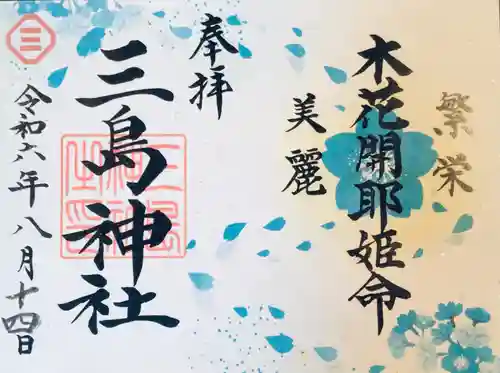 繁栄
木花開耶姫命
美麗
奉拝
三島神社
三島神社之印
令和六年八月十四日
三